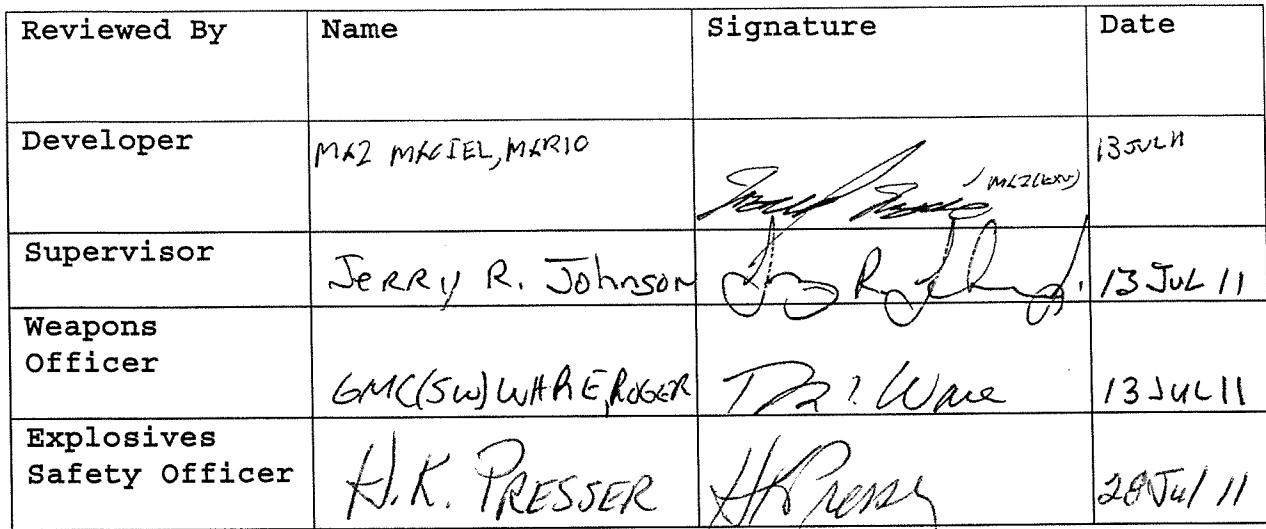 Reviewed By Name Signature Date
Developer MA2 MACIEL, MARIO MA2(EXW) 13 JUL 11
Supervisor Jerry R. Johnson 13 Jul 11
Weapons
Officer GMC(SW) WARE, ROGER Ware 13 JUL 11
Explosives
Safety Officer H.K. PRESSER HKPresser 28 Jul 11